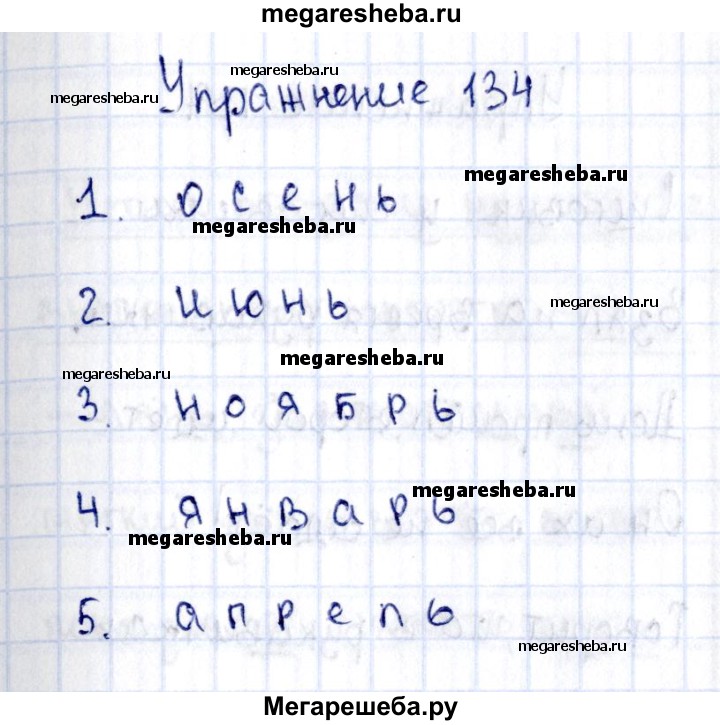 megaresheba.ru
megaresheba.ru
megaresheba.ru
Упражнение 134
megaresheba.ru
1. осень
megaresheba.ru
2. июнь
megaresheba.ru
megaresheba.ru
megaresheba.ru
3. ноябрь
megaresheba.ru
4. январь
megaresheba.ru
5. апрель
megaresheba.ru
Мегарешеба.ру